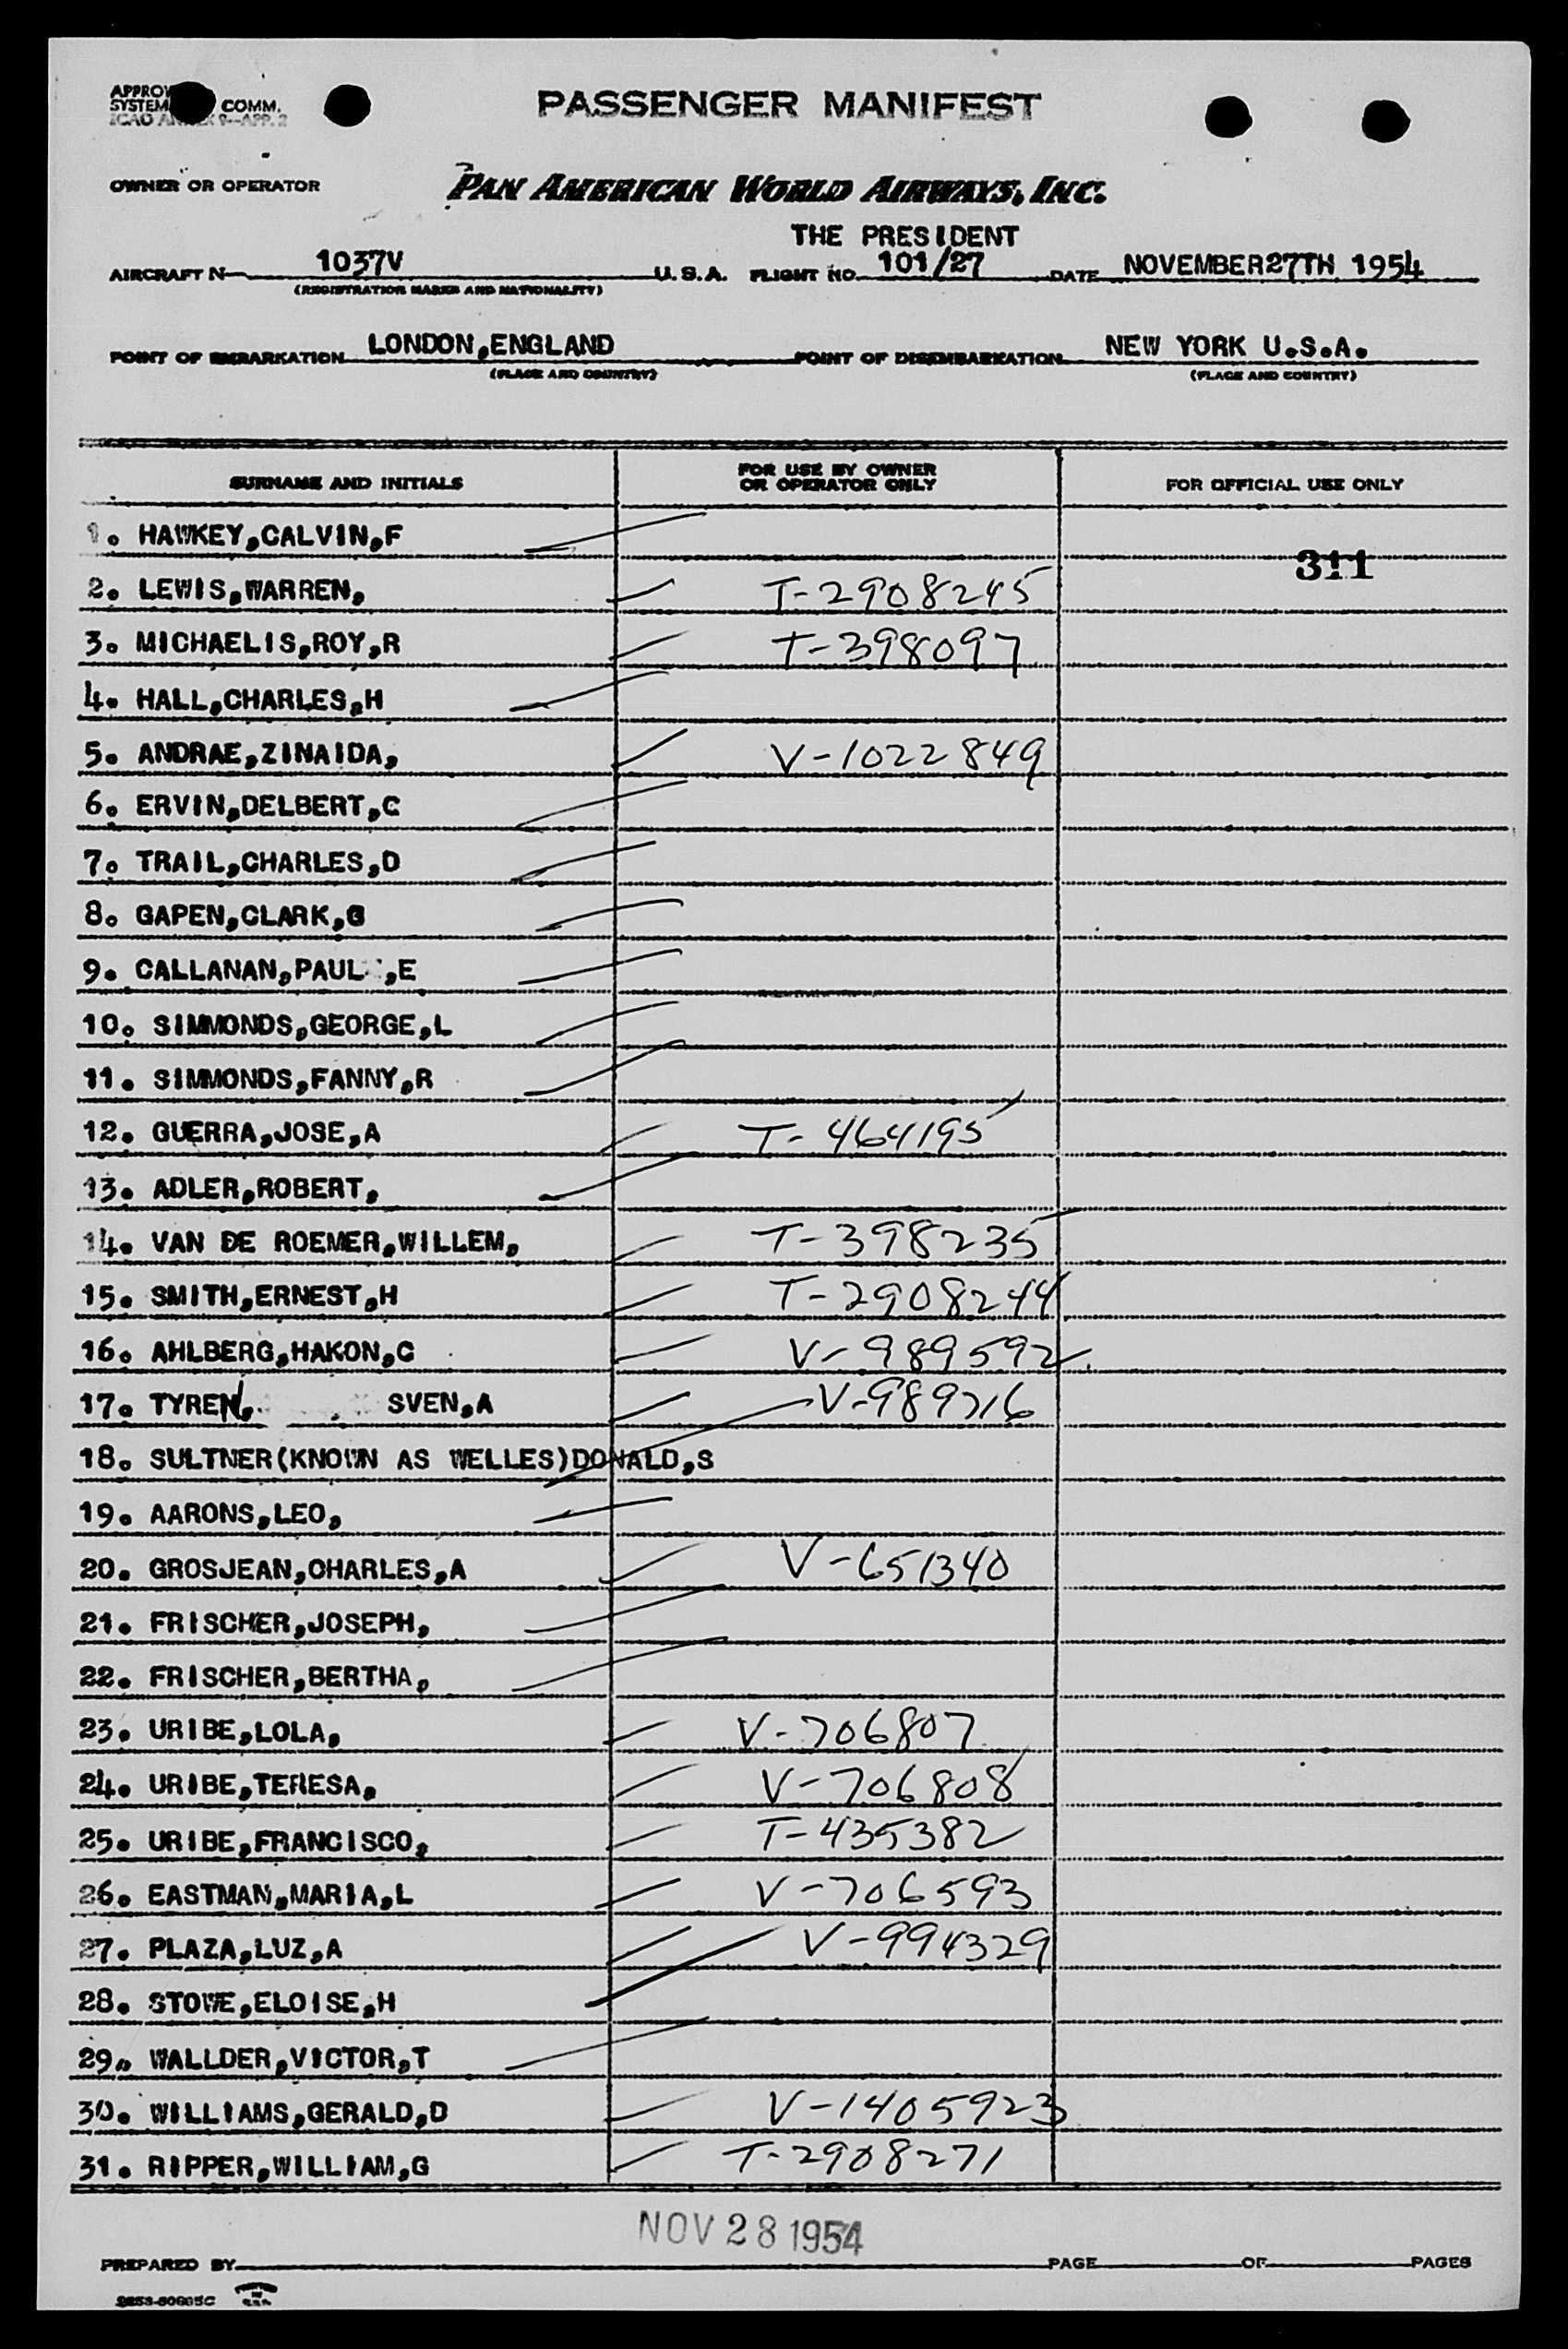 PASSENGER MANIFEST
COMM.
OWNER OR OPERATOR PAN AMERICAN WORLD AIRWAYS, INC.
THE PRESIDENT
AIRCRAFT N 1037V U. S. A. FLIGHT NO. 101/27 DATE NOVEMBER27TH 1954
(REGISTRATION MARKS AND NATIONALITY)
POINT OF EMBARKATION LONDON,ENGLAND POINT OF DISEMBARKATION NEW YORK U.S.A.
(PLACE AND COUNTRY) (PLACE AND COUNTRY)
SURNAME AND INITIALS FOR USE BY OWNER OR OPERATOR ONLY FOR OFFICIAL USE ONLY
1. HAWKEY,CALVIN,F
311
2. LEWIS,WARREN, T-2908245
3. MICHAELIS,ROY,R T-398097
4. HALL,CHARLES,H
5. ANDRAE,ZINAIDA, V-1022849
6. ERVIN,DELBERT,C
7. TRAIL,CHARLES,D
8. GAPEN,CLARK,G
9. CALLANAN,PAUL ,E
10. SIMMONDS,GEORGE,L
11. SIMMONDS,FANNY,R
12. GUERRA,JOSE,A T-464195
13. ADLER,ROBERT,
14. VAN DE ROEMER,WILLEM, T-398235
15. SMITH,ERNEST,H T-2908244
16. AHLBERG,HAKON,C V-989592
17. TYREN, SVEN,A V-989716
18. SULTNER(KNOWN AS WELLES)DONALD,S
19. AARONS,LEO,
20. GROSJEAN,CHARLES,A V-651340
21. FRISCHER,JOSEPH,
22. FRISCHER,BERTHA,
23. URIBE,LOLA, V-706807
24. URIBE,TERESA, V-706808
25. URIBE,FRANCISCO, T-435382
26. EASTMAN,MARIA,L V-706593
27. PLAZA,LUZ,A V-994329
28. STOWE,ELOISE,H
29. WALLDER,VICTOR,T
30. WILLIAMS,GERALD,D V-1405923
31. RIPPER,WILLIAM,G T-2908271
NOV 28 1954
PREPARED BY PAGE OF PAGES